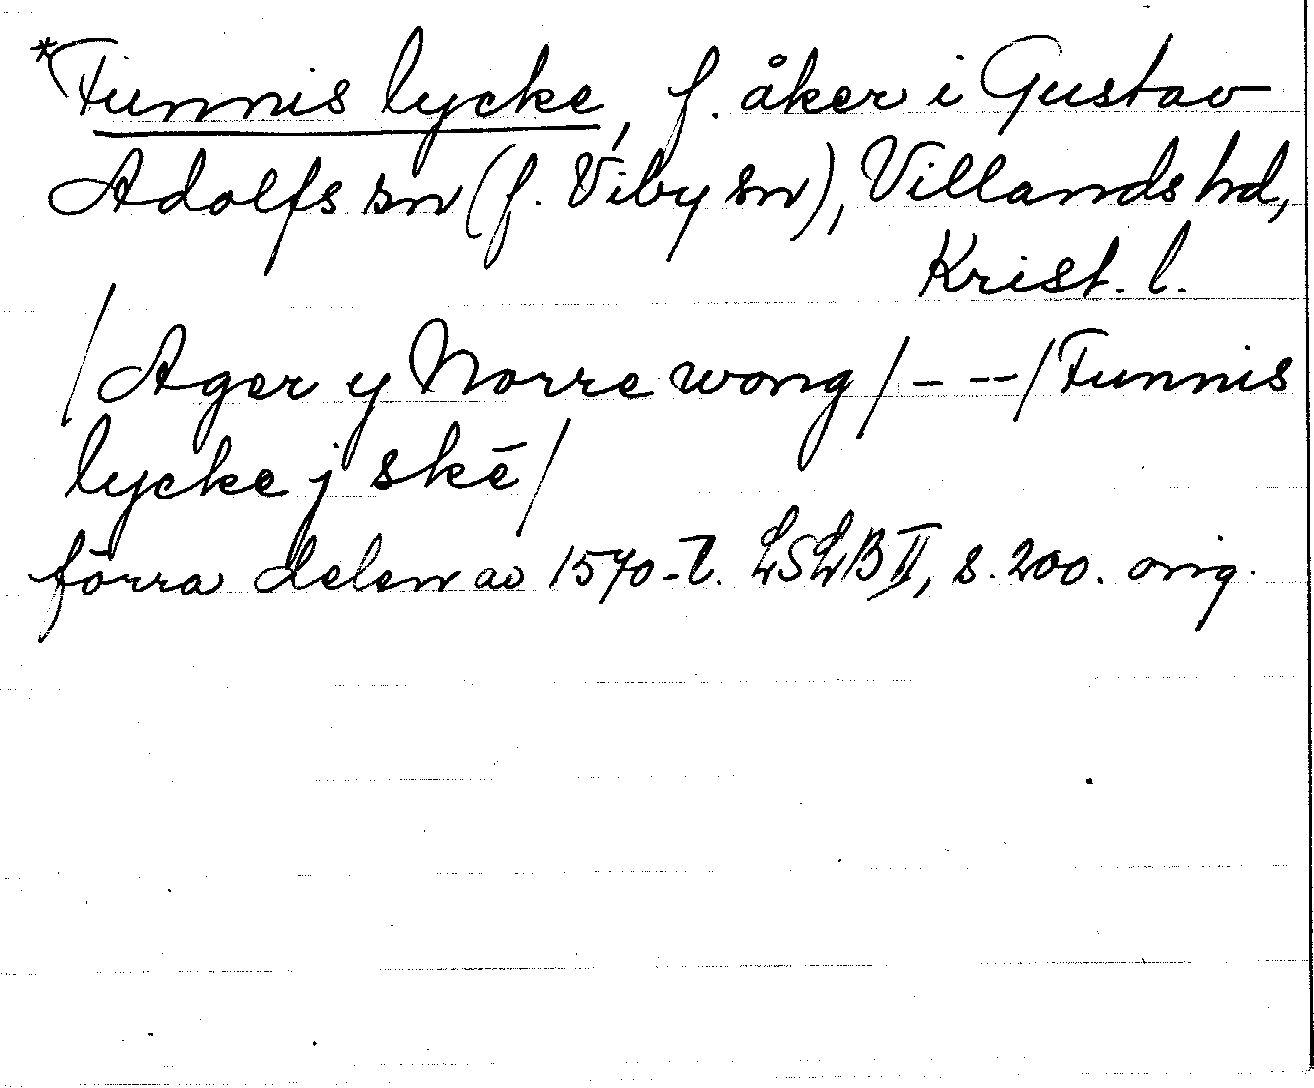 *Funnis lycke, f. åker i Gustav
Adolfs sn (f. Viby sn), Villands hd,
Krist. l.
/Ager y Norre wong/ - - -/Funnis
lycke j skē/
förra delen av 1570-t. LSLB II, s. 200. orig.